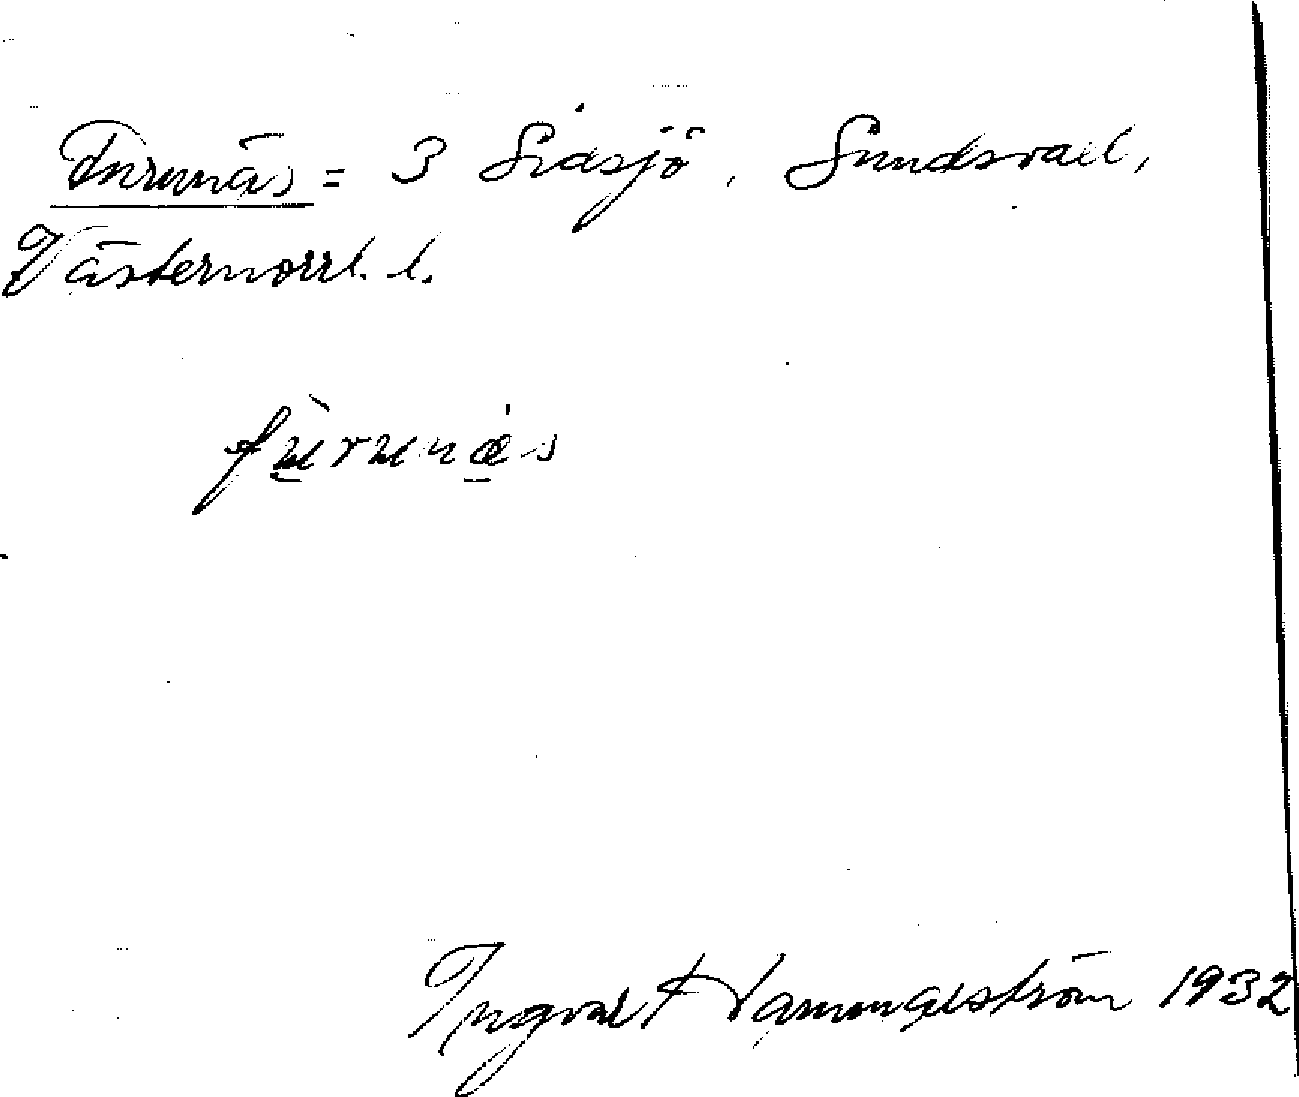 Furunäs = 3 Sidsjö, Sundsvall,
Västernorrl. l.
fùrunǽs
Ingvar Hammarström 1932